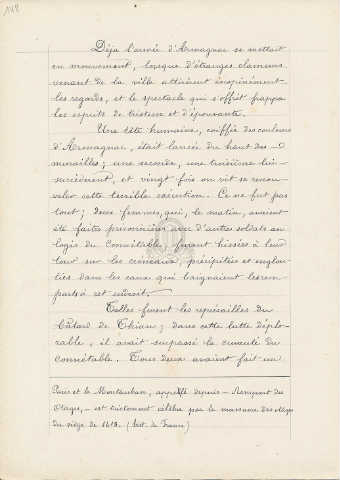 142
Déjà l'armée d'Armagnac se mettait
en mouvement, lorsque d'étranges clameurs
venant de la ville attirèrent inopinément
les regards, et le spectacle qui s'offrit frappa
les esprits de tristesse et d'épouvante.
Une tête humaine, coiffée des couleurs
d'Armagnac, était lancée du haut des
murailles ; une seconde, une troisième lui
succèdèrent, et vingt fois on vit se renou-
veler cette terrible exécution. Ce ne fut pas
tout ; deux femmes, qui, le matin, avaient
été faites prisonnières avec d'autres soldats au
logis du Connétable, furent hissées à leur
tour sur les créneaux, précipitées et englou-
ties dans les eaux qui baignaient les rem-
parts à cet endroit.
Telles furent les représailles du
Bâtard de Thian ; dans cette lutte déplo-
rable, il avait surpassé la cruauté du
connétable. Tous deux avaient fait un
Paris et le Montauban, appelé depuis - Rempart des
Otages, - est tristement célèbre par le massacre des otages
du siège de 1418. (hist. de France)